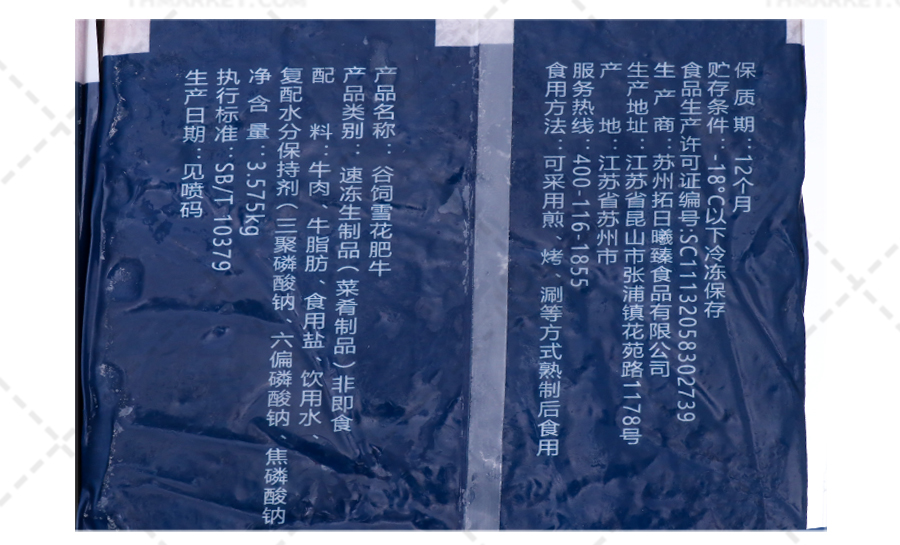 产品名称：谷饲雪花肥牛
产品类别：速冻生制品(菜肴制品)非即食
配 料：牛肉、牛脂肪、食用盐、饮用水、
复配水分保持剂(三聚磷酸钠、六偏磷酸钠、焦磷酸钠
净 含 量：3.575kg
执行标准：SB/T 10379
生产日期：见喷码
保 质 期：12个月
贮存条件：-18°C以下冷冻保存
食品生产许可证编号:SC11132058302739
生 产 商：苏州拓日曦臻食品有限公司
生产地址：江苏省昆山市张浦镇花苑路1178号
产 地：江苏省苏州市
服务热线：400-116-1855
食用方法：可采用煎、烤、涮等方式熟制后食用